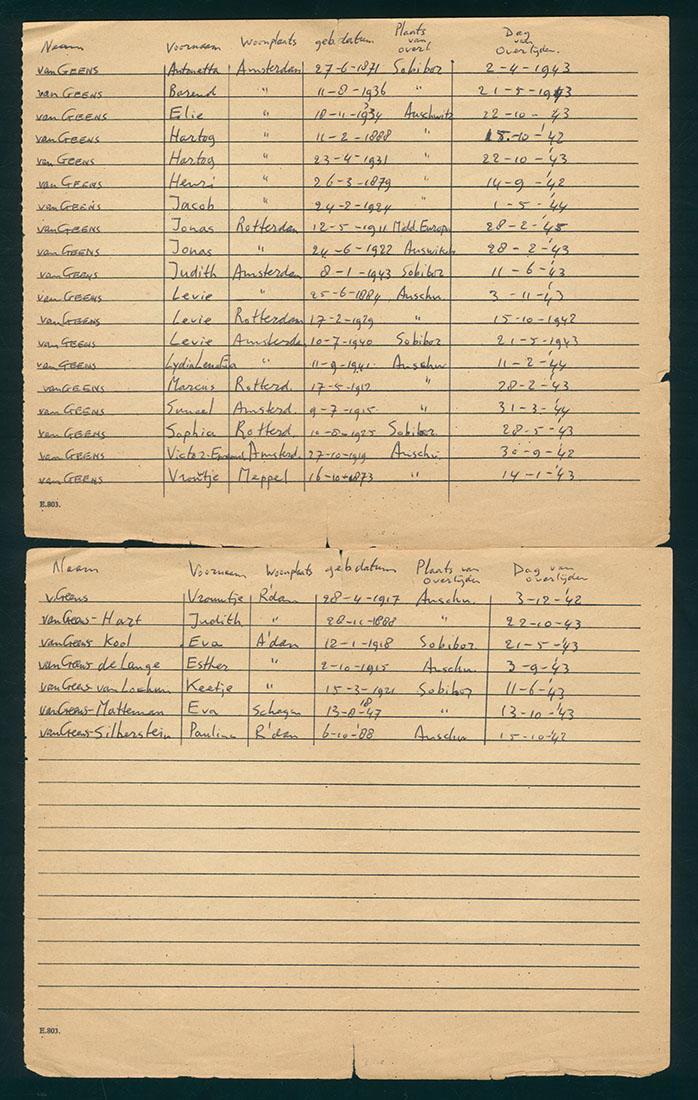 Naam Voornaam Woonplaats geb. datum Plaats van overl. Dag van Overlijden.
van GEENS Antonetta Amsterdam 27-6-1871 Sobibor 2-4-1943
van GEENS Barend " 11-8-1936 " 21-5-1943
van GEENS Elie " 18-11-1934 Auschwitz 22-10-'43
van GEENS Hartog " 11-2-1888 " 15-10-'42
van GEENS Hartog " 23-4-1931 " 22-10-'43
van GEENS Henri " 26-3-1879 " 14-9-'42
van GEENS Jacob " 24-2-1924 " 1-5-'44
van GEENS Jonas Rotterdam 12-5-1911 Midd. Europa 28-2-'45
van GEENS Jonas " 24-6-1922 28-2-'43
van GEENS Judith Amsterdam 8-1-1943 Sobibor 11-6-'43
van GEENS Levie " 25-6-1884 Auschw. 3-11-'43
van GEENS Levie Rotterdam 17-2-1929 " 15-10-1942
van GEENS Levie Amsterda 10-7-1940 Sobibor 21-5-1943
van GEENS Lydia Lena Eva " 11-9-1941 Auschw 11-2-'44
van GEENS Marcus Rotterd. 17-5-1912 " 28-2-'43
van GEENS Samuel Amsterd. 9-7-1915 " 31-3-'44
van GEENS Sophia Rotterd. 10-8-1925 Sobibor. 28-5-'43
van GEENS Victor-Emanuel Amsterd. 27-10-1919 Auschw. 30-9-'42
van GEENS Vrouwtje Meppel 16-10-1873 " 14-1-'43
E.803.
Naam Voornaam Woonplaats geb datum Plaats van overlijden Dag van overlijden
v. Geens Vrouwtje R'dam 28-4-1917 Auschw. 3-12-'42
van Geens-Hart Judith " 28-11-1888 " 22-10-'43
van Geens Kool Eva A'dam 12-1-1918 Sobibor 21-5-'43
van Geens de Lange Esther " 2-10-1915 Auschw. 3-9-'43
van Geens van Lochem Keetje " 15-3-1921 Sobibor 11-6-'43
van Geens-Matteman Eva Schagen 13-8-'47 18 " 13-10-'43
van Geens-Silberstein Paulina R'dam 6-10-'88 Auschw 15-10-'42
E.803.